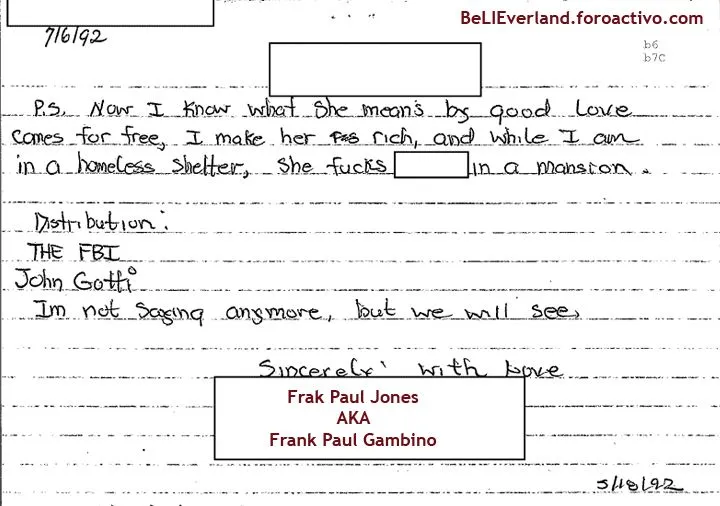 BeLIEverland.foroactivo.com
7/6/92
b6
b7C
P.S. Now I know what She means by good Love
comes for free, I make her rich, and while I am
in a homeless Shelter, She fucks in a mansion.
Distribution:
THE FBI
John Gotti
Im not Saying anymore, but we will see,
Sincerely with Love
Frak Paul Jones
AKA
Frank Paul Gambino
5/18/92